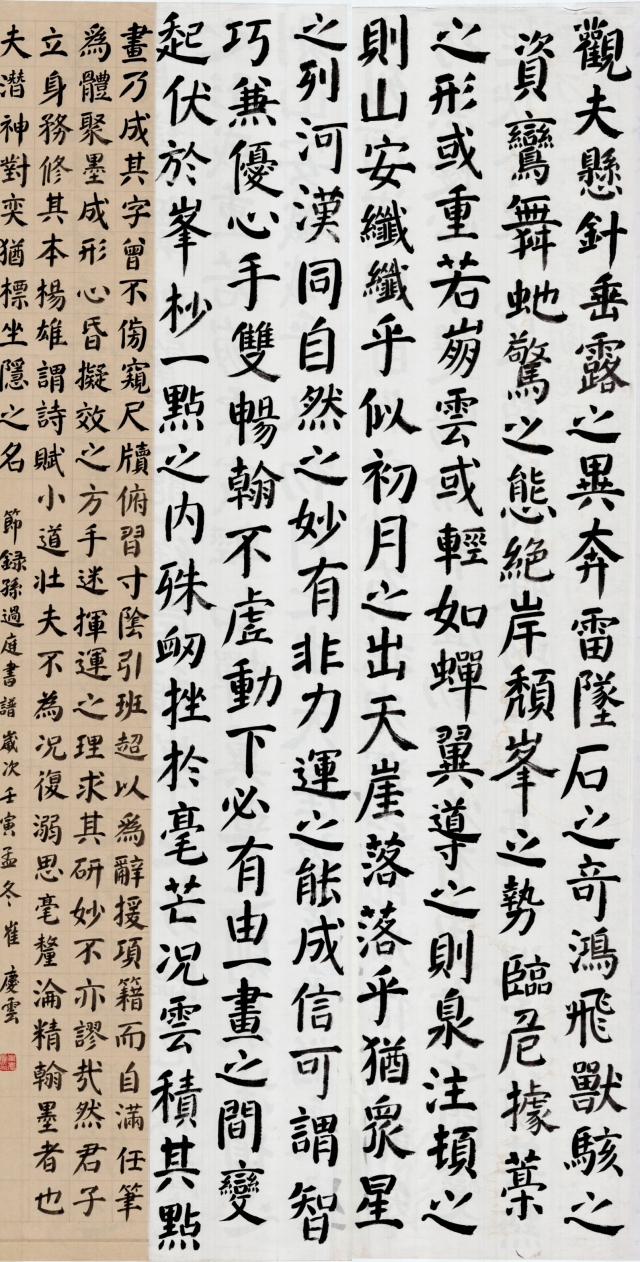 觀夫懸針垂露之異奔雷墜石之奇鴻飛獸駭之
資鸞舞虵驚之態絕岸頹峯之勢臨危據槀
之形或重若崩雲或輕如蟬翼導之則泉注頓之
則山安纖纖乎似初月之出天崖落落乎猶眾星
之列河漢同自然之妙有非力運之能成信可謂智
巧兼優心手雙暢翰不虛動下必有由一畫之間變
起伏於峯杪一點之內殊衂挫於毫芒況雲積其點
畫乃成其字曾不傍窺尺牘俯習寸陰引班超以爲辭援項籍而自滿任筆
爲體聚墨成形心昏擬效之方手迷揮運之理求其研妙不亦謬哉然君子
立身務修其本楊雄謂詩賦小道壯夫不為況復溺思毫釐淪精翰墨者也
夫潛神對奕猶標坐隱之名 節録孫過庭書譜歲次壬寅孟冬崔慶雲